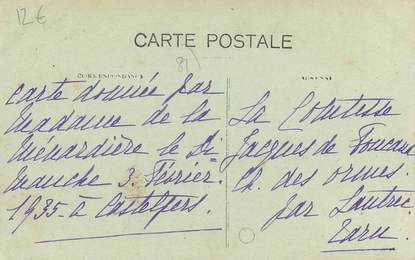 12€
CARTE POSTALE
81
CORRESPONDANCE
ADRESSE
Carte donnée par
Madame de la
Ménardière le Di
manche 3. Février.
1935 - à Castelpers.
La Comtesse
Jacques de Toucaud
Ch. des ormes.
par Lautrec
Tarn.